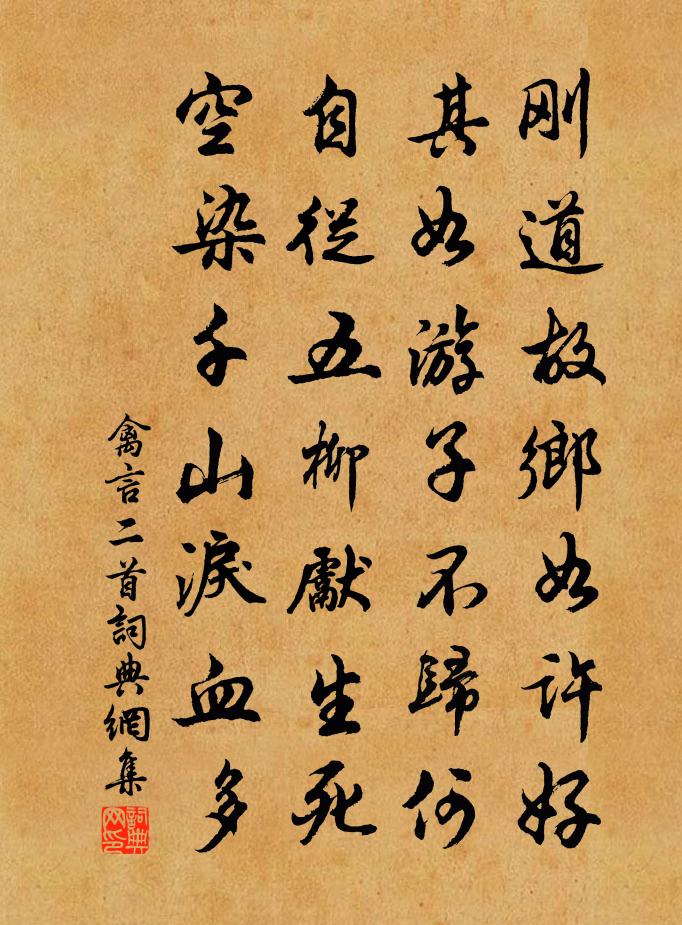 刚道故鄉如许好
其如游子不歸何
自從五柳獻生死
空染千山淚血多
禽言二首詞典網集
詞典
网印